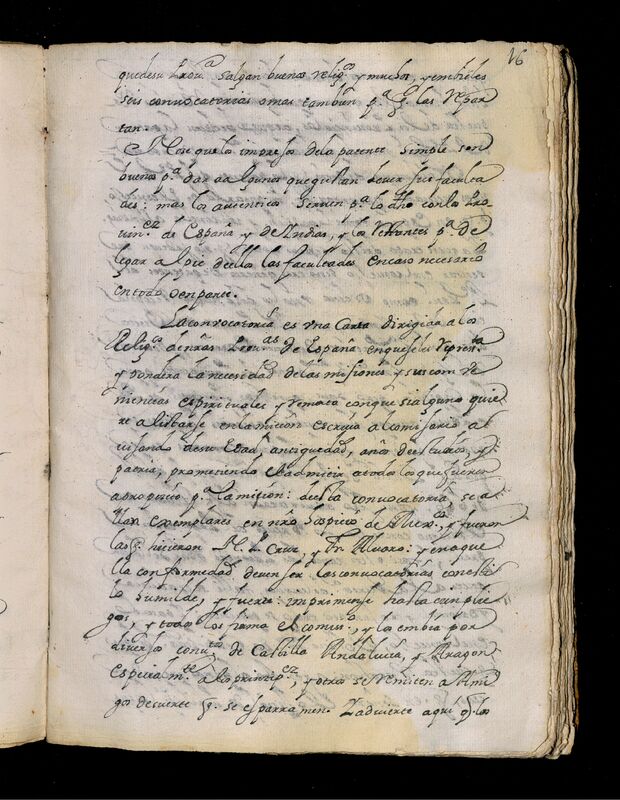 16
que de su Prov.a salgan buenos relig.os y muchos, y embieles
seis convocatorias o mas tambien p.a q. las repar
tan.
Note que lo impreso de la patente simple son
buenos p.a dar a algunos que quitan lever sus faculta
des: mas los autenticos sirven p.a lo dho con las Pro-
vin.cz de España y de Indias, y los p.a De
legar al pie de ellos las facultades en caso necesario
en todo o en parte.
La convocatoria es vna Carta dirigida a los
Relig.os de nras Prov.as de España en que se les represta
y pondera la necesidad de las misiones y sus com ve
niencias espirituales y remata con que si alguno quie
re alistarse en la mision escriva al comisario a
visando de su Edad, antiguedad, años de estudios, y
patria, prometiendo el admitir a todos los que fueren
a proposito p.a la mision: de esta convocatoria, se a
llan exemplares en nro Hospicio de Mex.co, y fueron
las q. hicieron N. P. Cruz, y Fr. Alvaro: y en aque
lla conformedad deven ser las convocatorias con esti
lo humilde, y fuerte: imprimense hasta cien plie
gos, y todos los firma el comis.o, y los embia por
diversos conv.tos de Castilla Andalucia, y Aragon
Especialm.te a los princip.ez, y otros se remiten a Ami
gos de suerte q. se esparramen. Y advierte aqui q. los